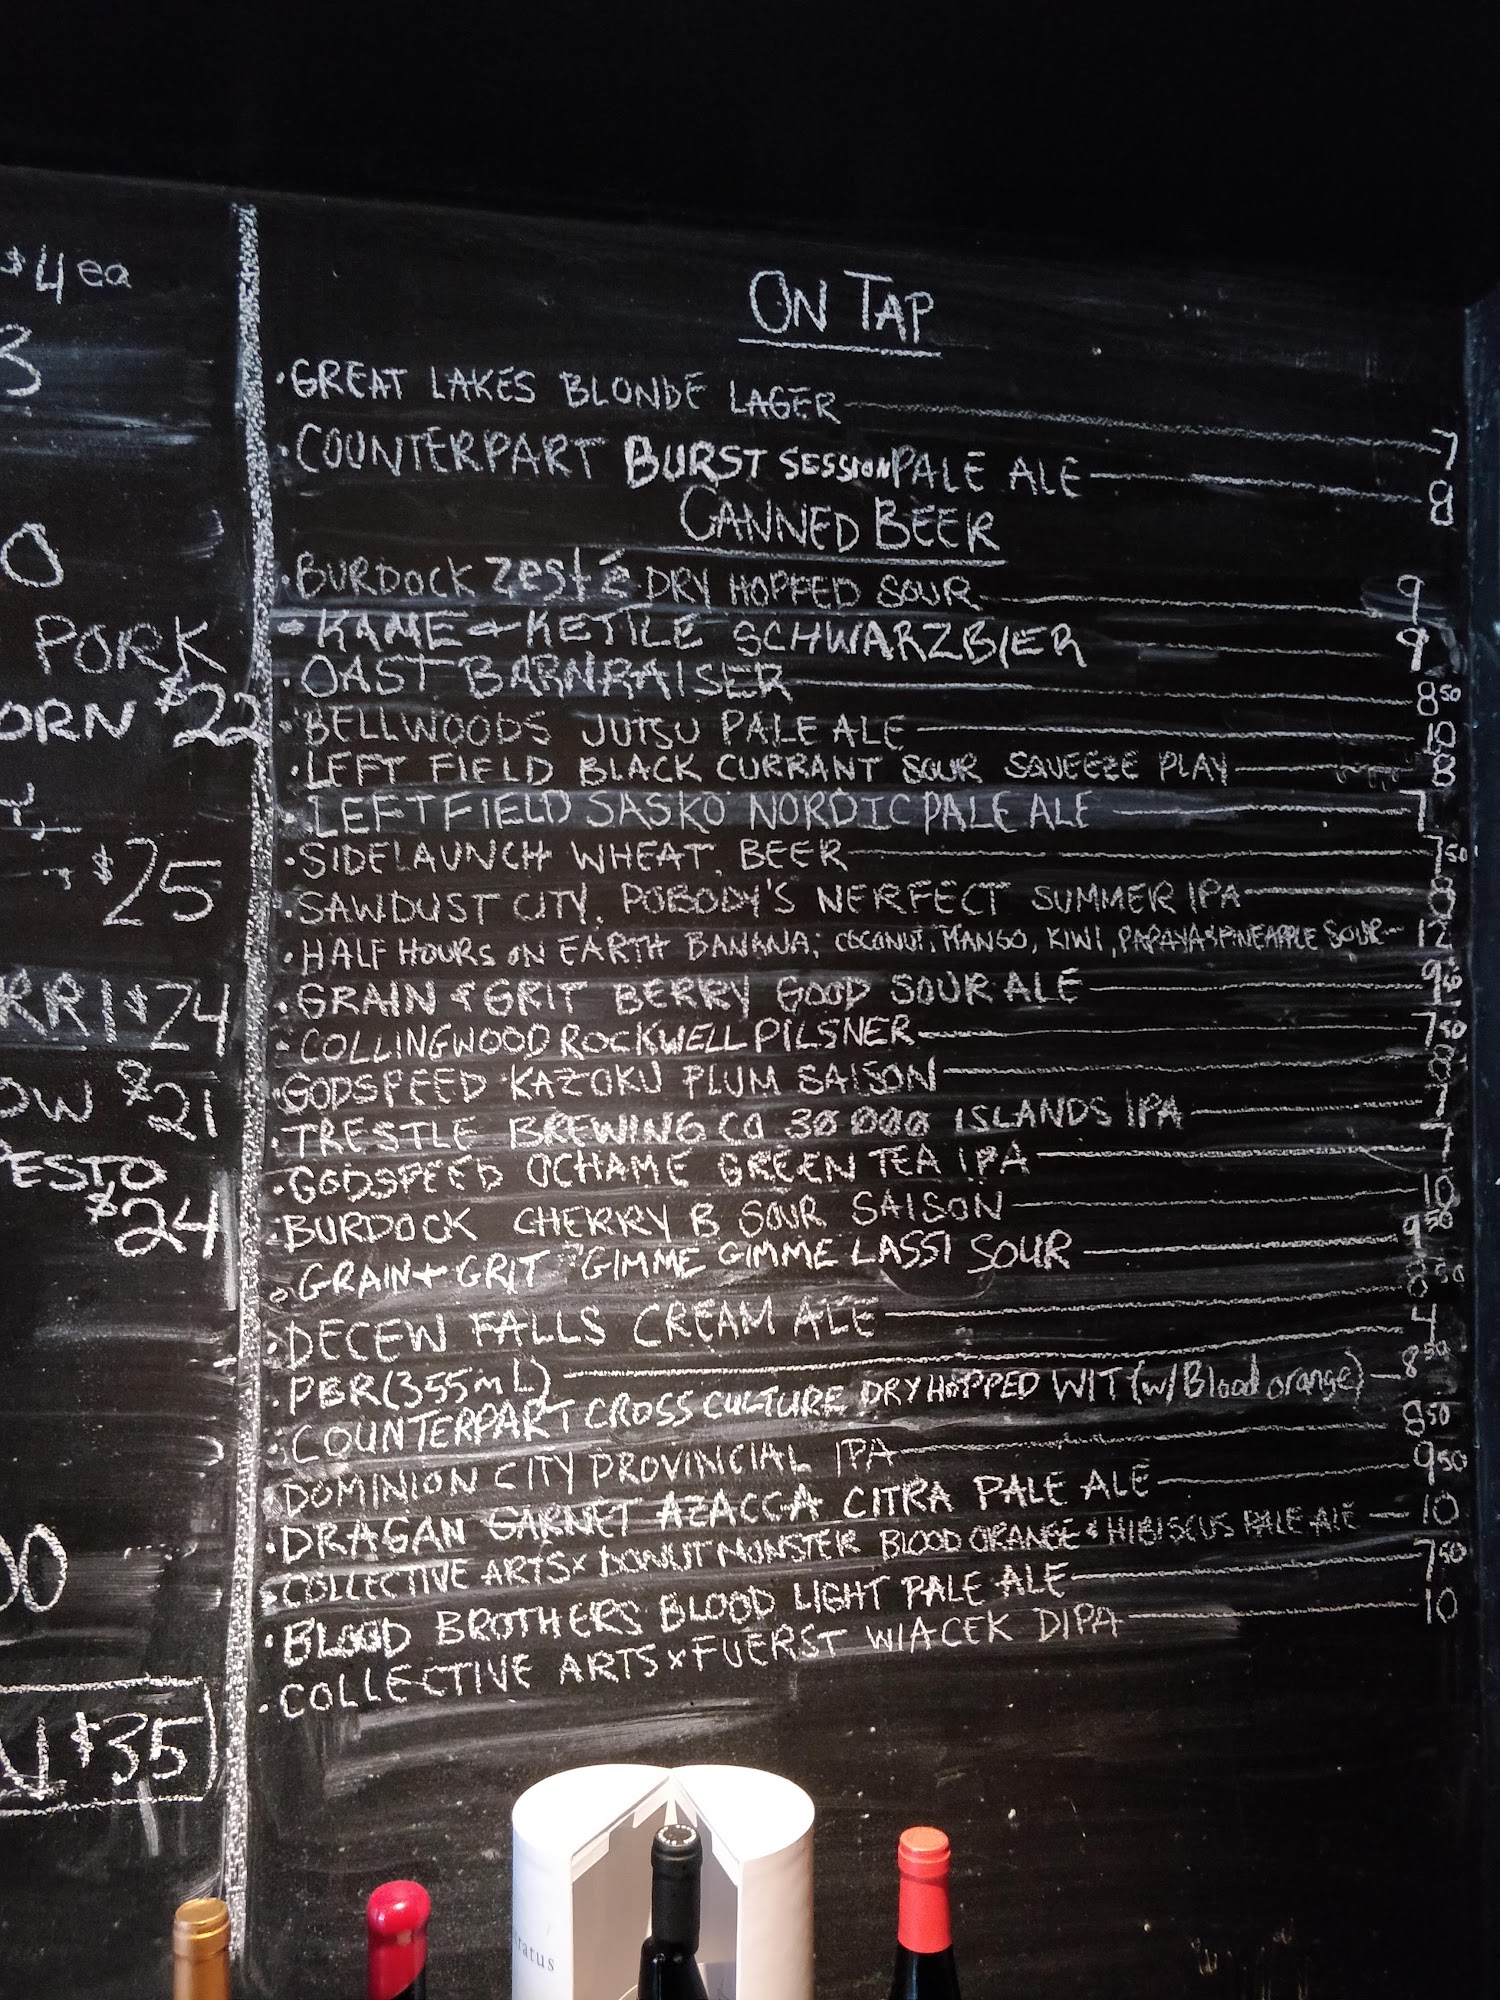 $4 ea
3
0
PORK
ORN $22
Y,
$25
RRI $24
OW $21
PESTO
$24
00
$35
ON TAP
• GREAT LAKES BLONDE LAGER 7
• COUNTERPART BURST SESSION PALE ALE 8
CANNED BEER
• BURDOCK Zesté DRY HOPPED SOUR 9
• KAME + KETTLE SCHWARZBIER 9
• OAST BARNRAISER 8 50
• BELLWOODS JUTSU PALE ALE 10
• LEFT FIELD BLACK CURRANT SOUR SQUEEZE PLAY 8
• LEFT FIELD SASKO NORDIC PALE ALE 7
• SIDELAUNCH WHEAT BEER 7 50
• SAWDUST CITY, POBODY'S NERFECT SUMMER IPA 8
• HALF HOURS ON EARTH BANANA, COCONUT, MANGO, KIWI, PAPAYA & PINEAPPLE SOUR 12
• GRAIN & GRIT BERRY GOOD SOUR ALE 9
• COLLINGWOOD ROCKWELL PILSNER 7 50
• GODSPEED KAZOKU PLUM SAISON 8
• TRESTLE BREWING CO 30 000 ISLANDS IPA 7
• GODSPEED OCHAME GREEN TEA IPA 7
• BURDOCK CHERRY B SOUR SAISON 10
• GRAIN + GRIT "GIMME GIMME LASSI SOUR 9 50
• DECEW FALLS CREAM ALE 8 50
• PBR (355mL) 4
• COUNTERPART CROSS CULTURE DRY HOPPED WIT (w/ Blood orange) 8 50
• DOMINION CITY PROVINCIAL IPA 8 50
• DRAGAN GARNET AZACCA CITRA PALE ALE 9 50
• COLLECTIVE ARTS x DONUT MONSTER BLOOD ORANGE & HIBISCUS PALE ALE 10
• BLOOD BROTHERS BLOOD LIGHT PALE ALE 7 50
• COLLECTIVE ARTS x FUERST WIACEK DIPA 10
ratus